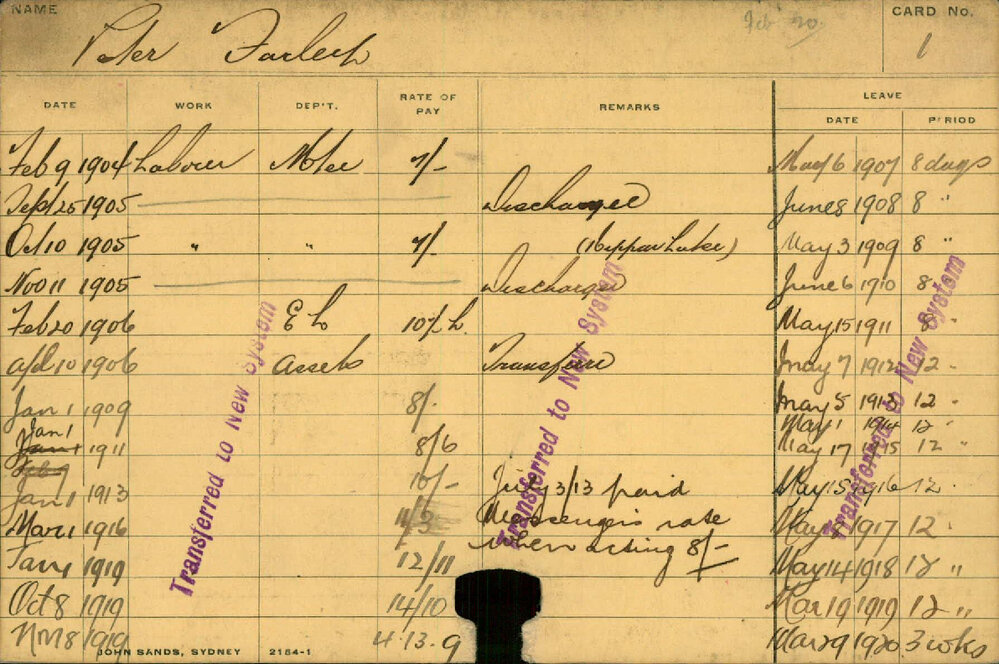 NAME
Peter Farley
Feb. 20.
CARD No.
1
DATE WORK DEP'T. RATE OF PAY REMARKS LEAVE
DATE PERIOD
Feb 9 1904 Labourer 7/- May 6 1907 8 days
Sept 25 1905 Discharged June 8 1908 8 "
Oct 10 1905 " " 7/- May 3 1909 8 "
Nov 11 1905 Discharged June 6 1910 8 "
Feb 20 1906 E L May 15 1911 8 "
Apl 10 1906 Assets Transfere May 7 1912 12 "
Jan 1 1909 8/- May 5 1913 12 "
May 1 1914 12 "
Jan 1 1911 8/6 May 17 1915 12 "
Jan 1 1913 10/- July 3/13 paid May 15 1916 12 "
Mar 1 1916 Messengers rate May 1917 12 "
Jan 1 1919 12/11 when acting 8/- May 14 1918 12 "
Oct 8 1919 14/10 Mar 19 1919 12 "
Nov 8 1919 4.13.9 Mar 29 1920 3 wks
Transferred to New System
Transferred to New System
Transferred to New System
JOHN SANDS, SYDNEY 2184-1